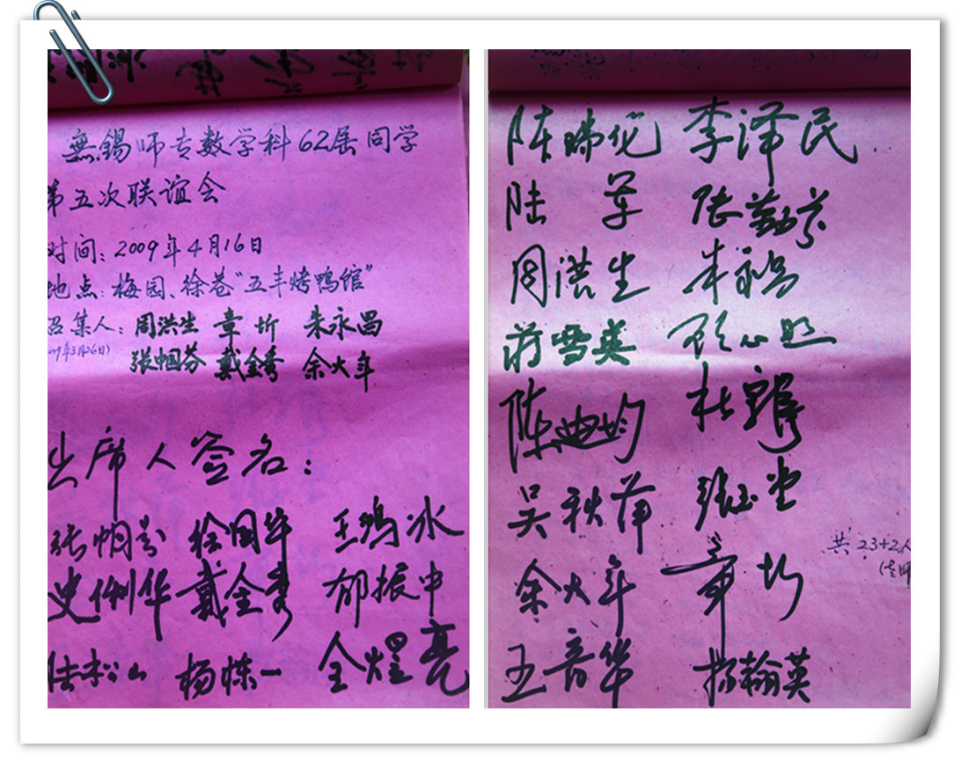 無锡师专数学科62届同学
第五次联谊会
时间：2009年4月16日
地点：梅园、徐巷“五丰烤鸭馆”
召集人：周洪生 章圻 朱永昌
张帼芬 戴金秀 余大年
出席人签名：
张帼芬 国华 王鸿冰
史俐华 戴金秀 郁振中
陆松山 杨炼一 全煜亮
陈瑞 李泽民
陆 军 张勤芬
周洪生 朱永昌
蒋雪英 心
陈迪均 杜
吴秋萍 张玉
余大年 章圻
王音华 杨翰英
共23+2人